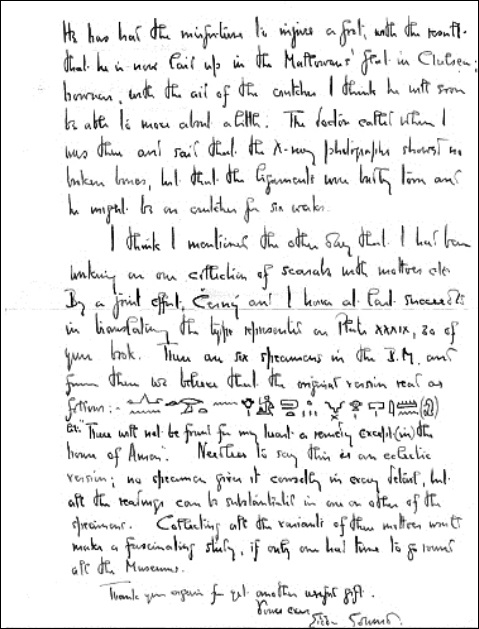 He has had the misfortune to injure a foot, with the result
that he is now laid up in the Mallowans' flat in Chelsea;
however, with the aid of the crutches I think he will soon
be able to move about a little. The doctor called when I
was there and said that the X-ray photographs showed no
broken bones, but that the ligaments were badly torn and
he might be on crutches for six weeks.
I think I mentioned the other day that I had been
working on our collection of scarabs with mottoes etc.
By a joint effort, Černý and I have at last succeeded
in translating the type represented on Plate XXXIX, 20 of
your book. There are six specimens in the B.M. and
from them we believe that the original version read as
follows:-
"There will not be found for my heart a remedy except (in) the
house of Amun. Needless to say this is an eclectic
version; no specimen gives it correctly in every detail, but
all the readings can be substantiated in one or other of the
specimens. Collecting all the variants of these mottoes would
make a fascinating study, if only one had time to go round
all the Museums.
Thank you again for yet another useful gift.
Yours ever